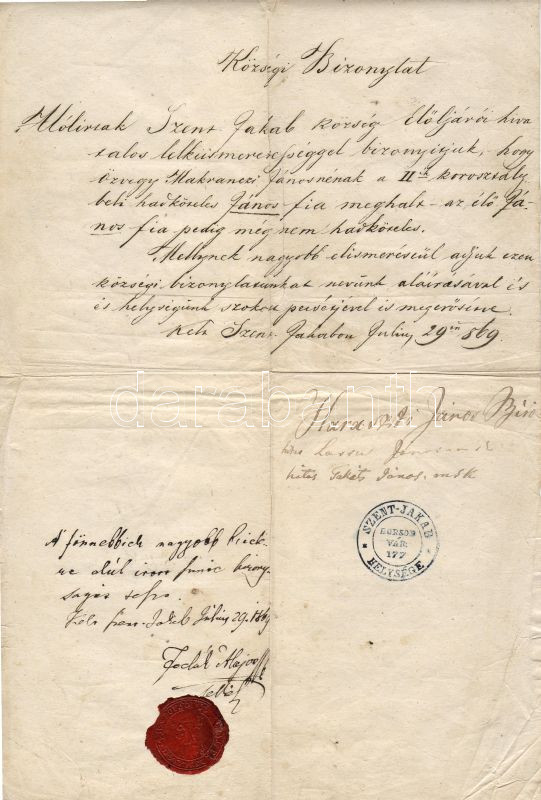 Községi Bizonylat
Alólirtak Szent Jakab község élőljárói hiva
talos lelkiismeretességgel bizonyitjuk, hogy
özvegy Makranczi Jánosnénak a IIik korosztály
beli hadköteles János fia meghalt - az élő Já-
nos fia pedig még nem hadköteles.
Mellynek nagyobb elismeréséül adjuk ezen
községi bizonylatunkat nevünk aláirásával és
és helységünk szokott pecsétjével is megerősitve.
Kelt Szent Jakabon Julius 29én 869.
János Biró
hites Takáts János. msk
SZENT-JAKAB
BORSOD
VÁR.
177
HELYSÉGE
A fönnebbiek nagyobb
re alúl
Julius 29. 1869
darabanth